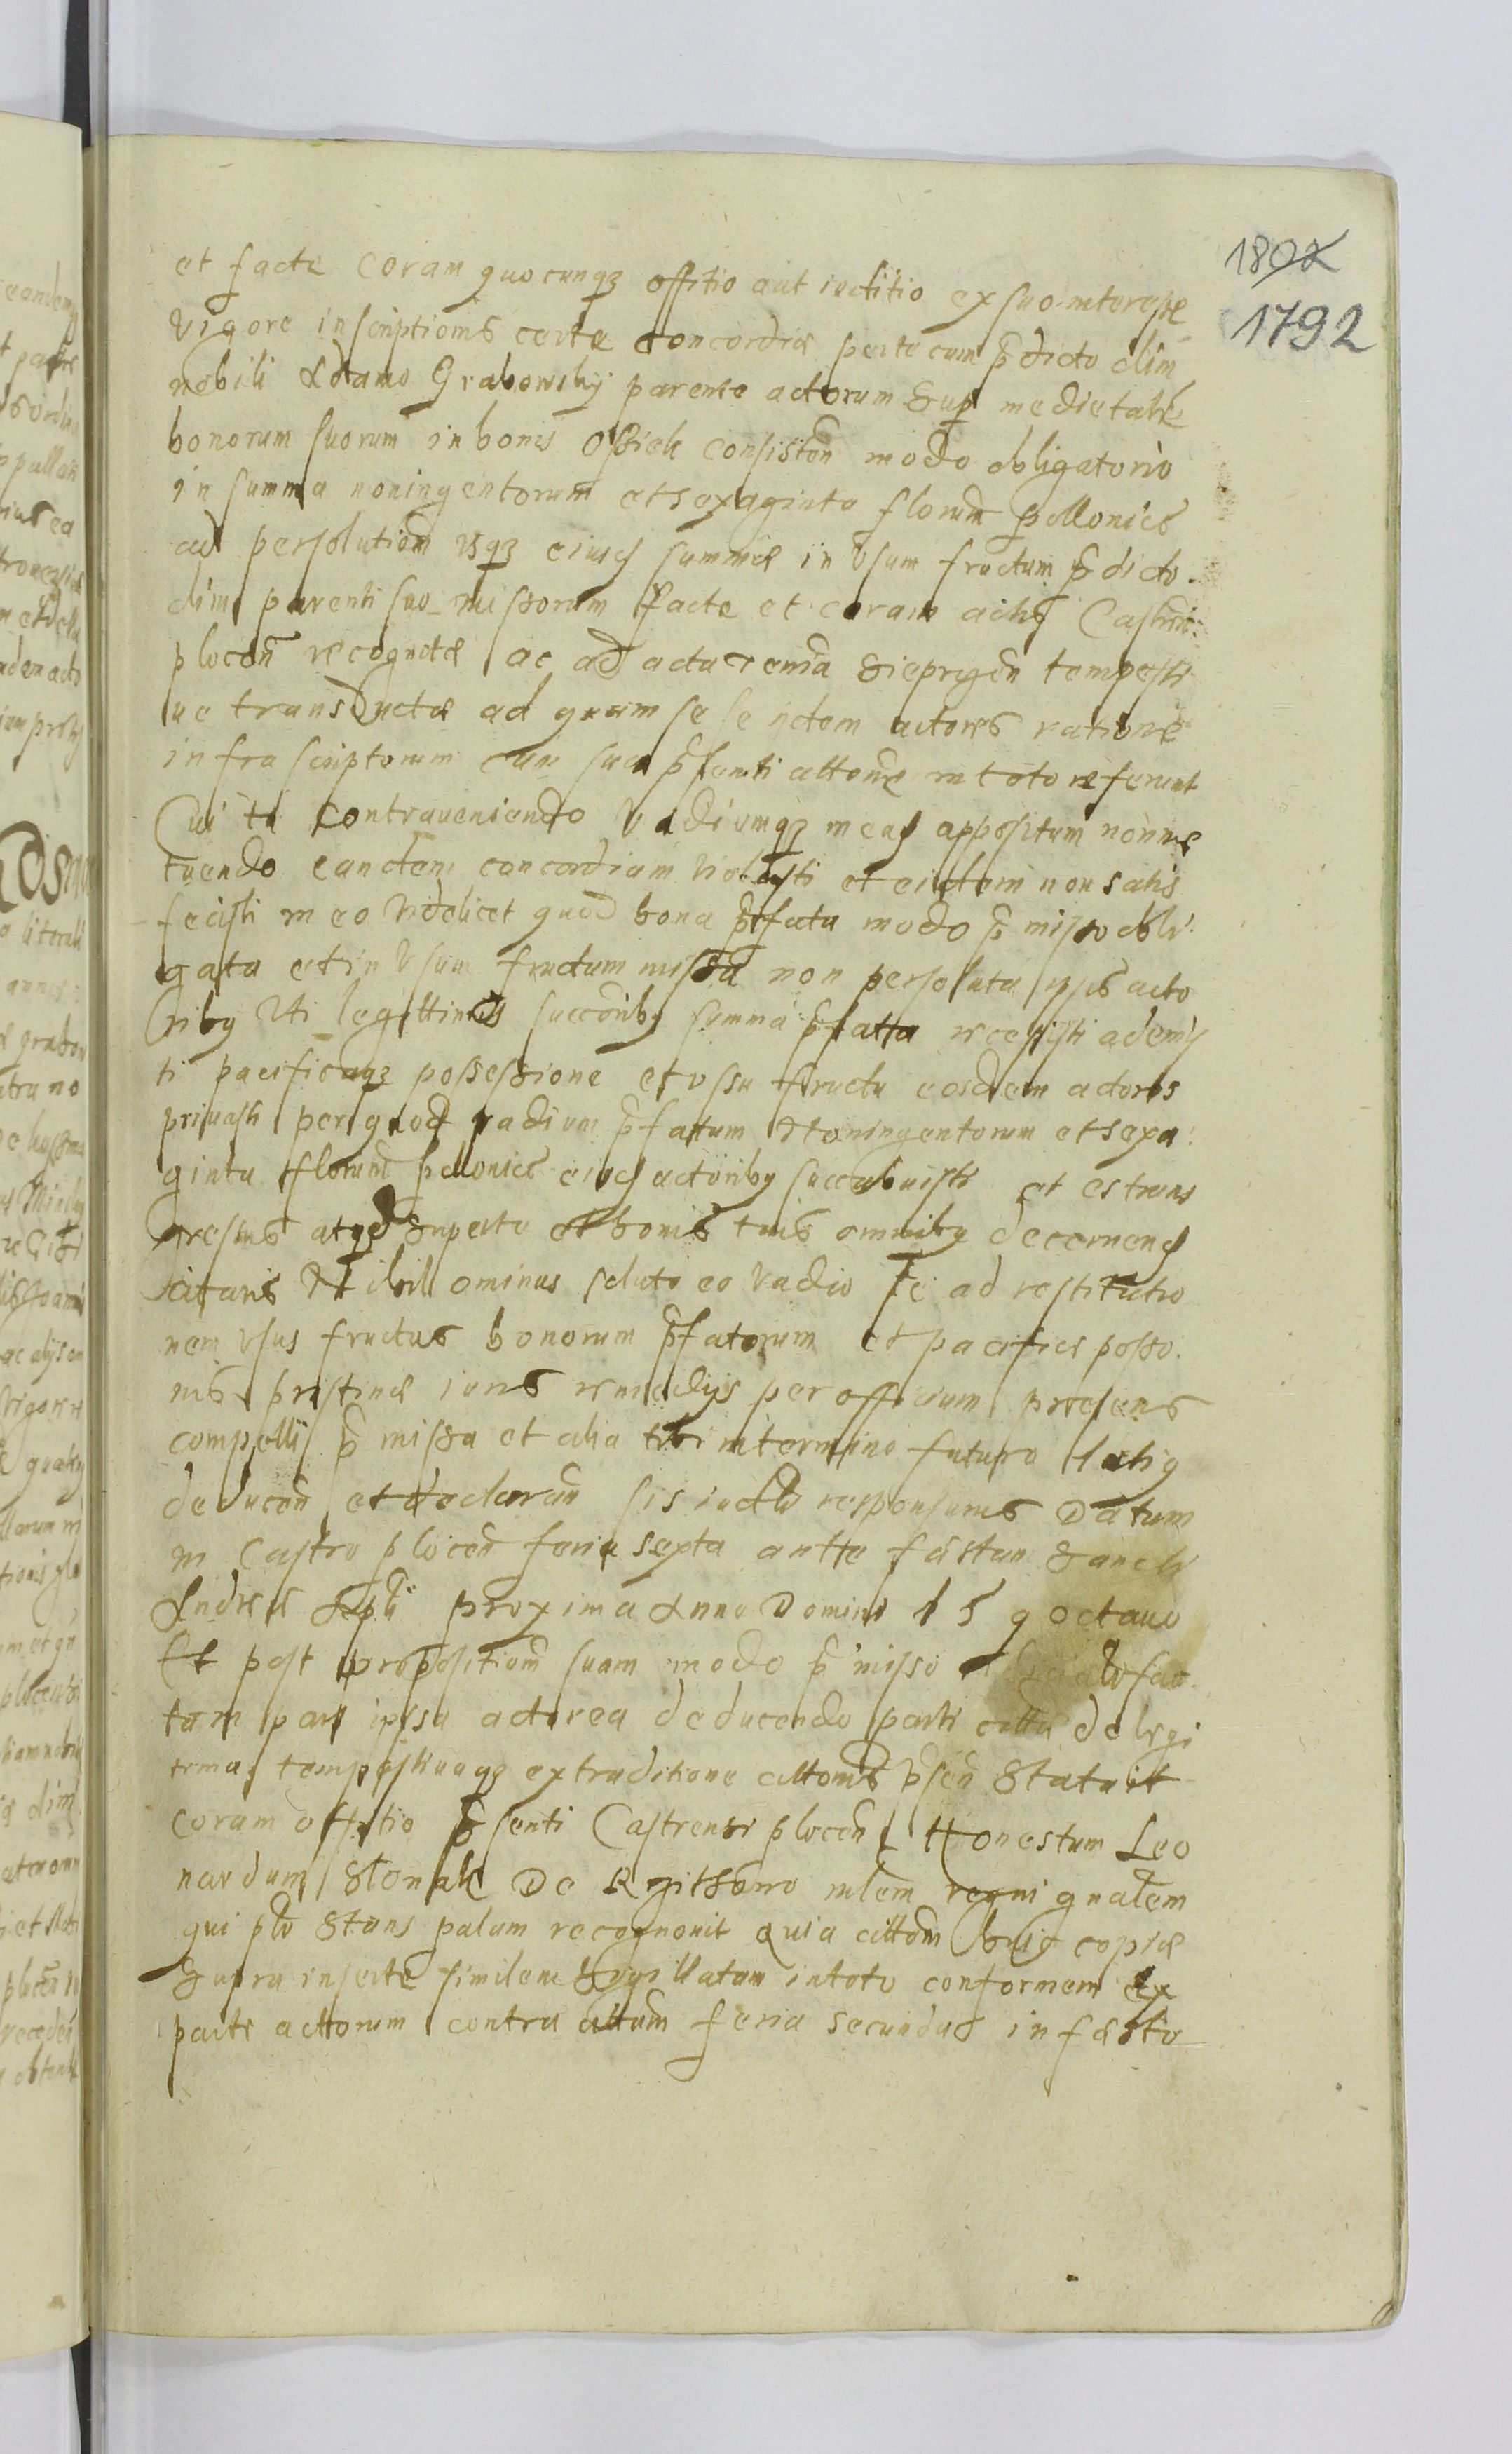 1802
1792
et facte coram quocunqȝ offitio aut iuditio ex suo interesse
vigore inscriptionis certæ concordiæ perte cum p̄dicto olim
nobili Adamo Grabowskij parente actorum sup medietate
bonorum suorum in bonis Ossiek consisteñ modo obligatorio
in summa noningentorum et sexaginta florum pollonics
ad persolutiom̄ usqȝ eiusd summæ in usum fructum p̄dicto
olim parenti suo missorum factæ et coram actis Castrñ
ploceñ recognitæ ac ad acta sieprgeñ tempesti
ue transductæ ad quam se se ijdem actores ratione
infra scriptorum cum sua p̄senti attone in toto referunt
Cui tu contraueniendo vadiumqȝ in ea appositum non me
tuendo eandem concordiam violasti et eidem non satis
fecisti in eo videlicet quod bona p̄fata modo p̄misso obli
gata et in usum fructum missa non persoluta ipsis acto
ribȝ uti legittimis succōribȝ summa p̄fatta recepisti ademis
ti pacificaqȝ possessione et ussu fructu eosdem actores
priuasti per quod vadium p̄fattum Noningentorum et sexa
ginta florum pollonics eisd actoribȝ succubuisti et es trans
gressus atqȝ superte et bonis tuis omnibȝ decernend
citaris Nihilominus soluto eo vadio te ad restitutio
nem usus fructus bonorum p̄fatorum et pacificæ posso
nis pristinæ iuris remedijs per officium presens
compelli p̄missa et alia tibi in termino futuro latiȝ
deduceñ et declarañ sis iudte responsurus Datum
in Castro ploceñ feria sexta antte festum Sancti
Andreæ Apłi proxima Anno Domini 159 octauo
Et post propositiom̄ suam modo p̄misso fac
tam pars ipsa actorea deducendo parti cittæ de legi
tima tempestiuaqȝ extraditione cittonis p̄señ Statuit
coram offitio p̄senti Castrensi ploceñ Honestum Leo
nardum Slonak De Rgithowo mlem regni gnałem
qui pło Stans palum recognouit quia cittom̄ huiȝ copiæ
supra insertæ similem sigillatam in toto conformem ex
parte acttorum contra cittum feria secunda in festo